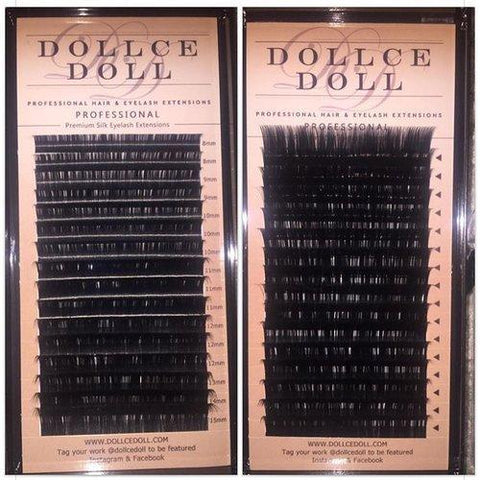 DOLLCE
DOLL
PROFESSIONAL HAIR & EYELASH EXTENSIONS
PROFESSIONAL
Premium Silk Eyelash Extensions
8mm
8mm
9mm
9mm
10mm
10mm
10mm
11mm
11mm
11mm
12mm
12mm
12mm
13mm
14mm
15mm
WWW.DOLLCEDOLL.COM
Tag your work @dollcedoll to be featured
Instagram & Facebook
DOLLCE
DOLL
PROFESSIONAL HAIR & EYELASH EXTENSIONS
PROFESSIONAL
WWW.DOLLCEDOLL.COM
Tag your work @dollcedoll to be featured
Instagram & Facebook